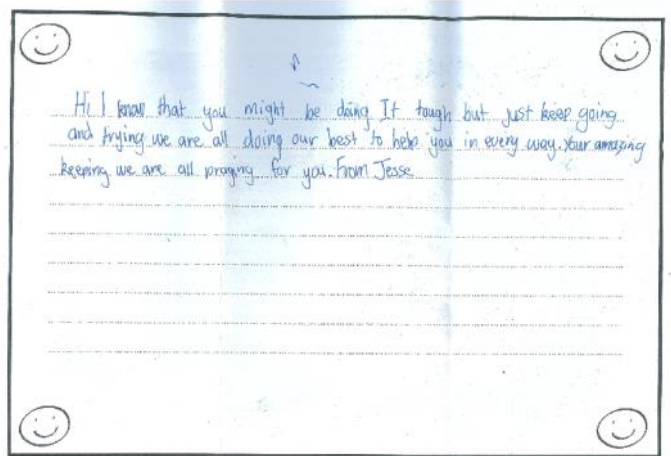 Hi I know that you might be doing It tough but just keep going
and trying we are all doing our best to help you in every way. Your amazing
keeping we are all praying for you. From Jesse